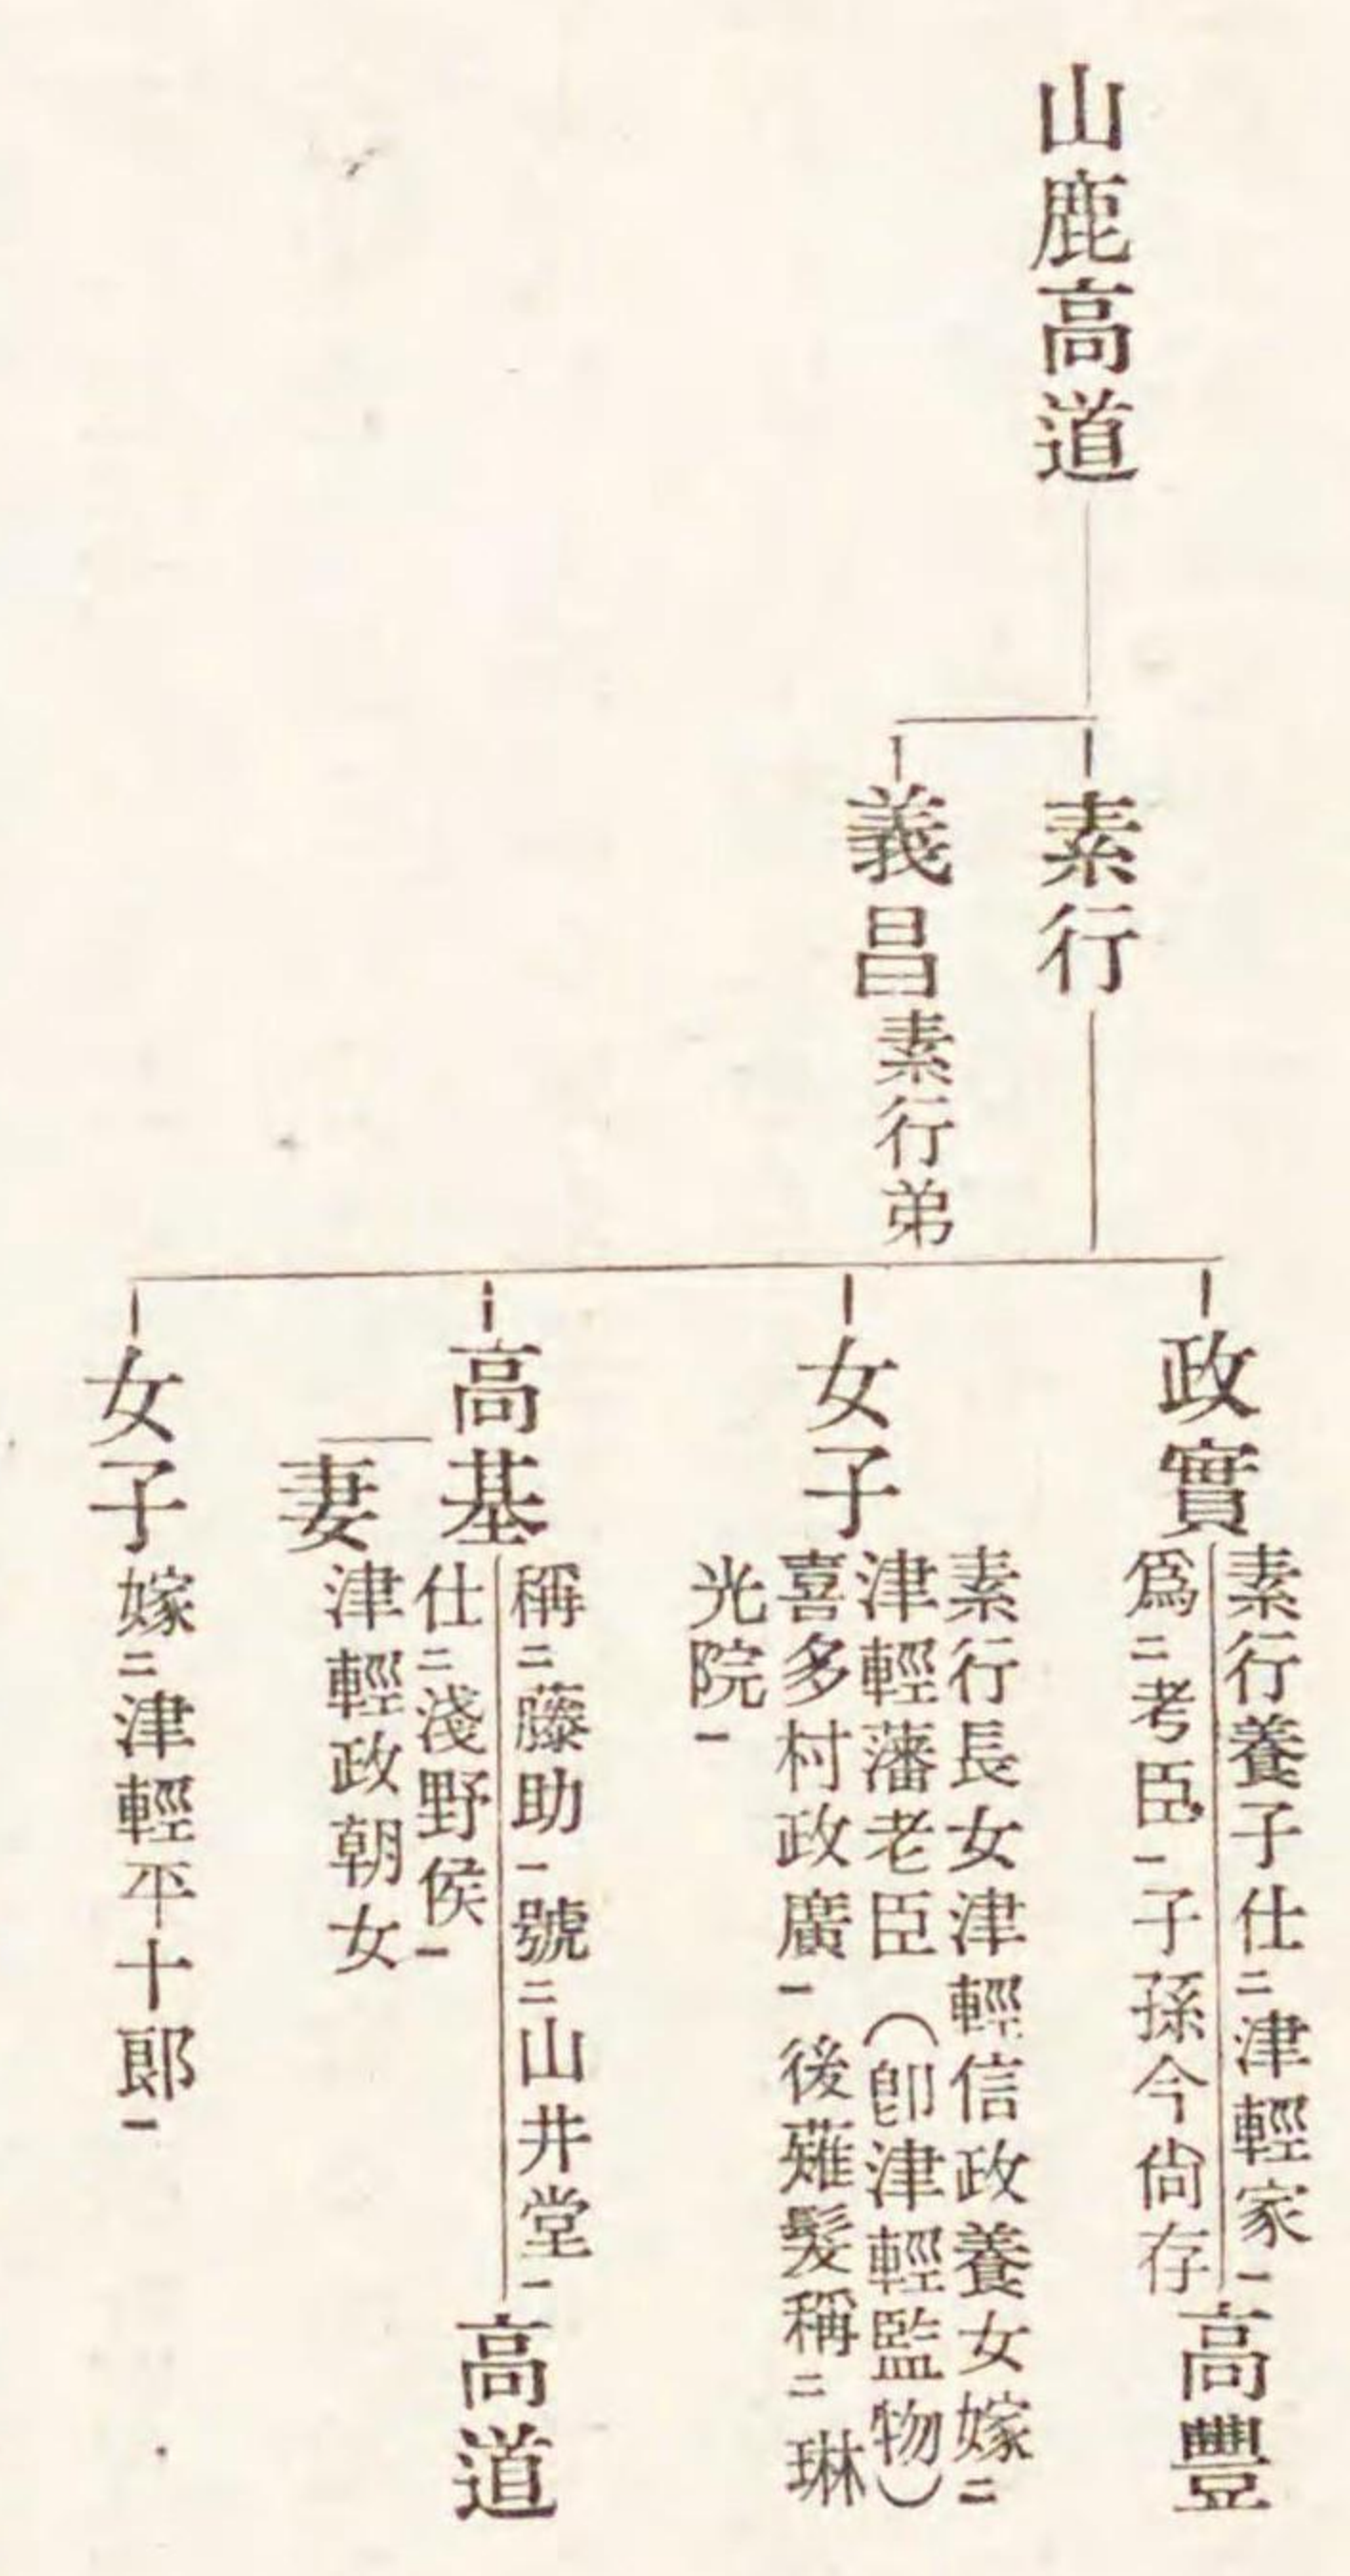 山鹿高道
素行
義昌素行弟
政實
素行養子仕二津輕家一
爲二考臣一子孫今尙存
高豐
女子
素行長女津輕信政養女嫁二
津輕藩老臣(卽津輕監物)
喜多村政廣一後薙髮稱二琳
光院一
高基
稱二藤助一號二山井堂一
仕二淺野侯一
高道
妻
津輕政朝女
女子嫁二津輕平十郞一